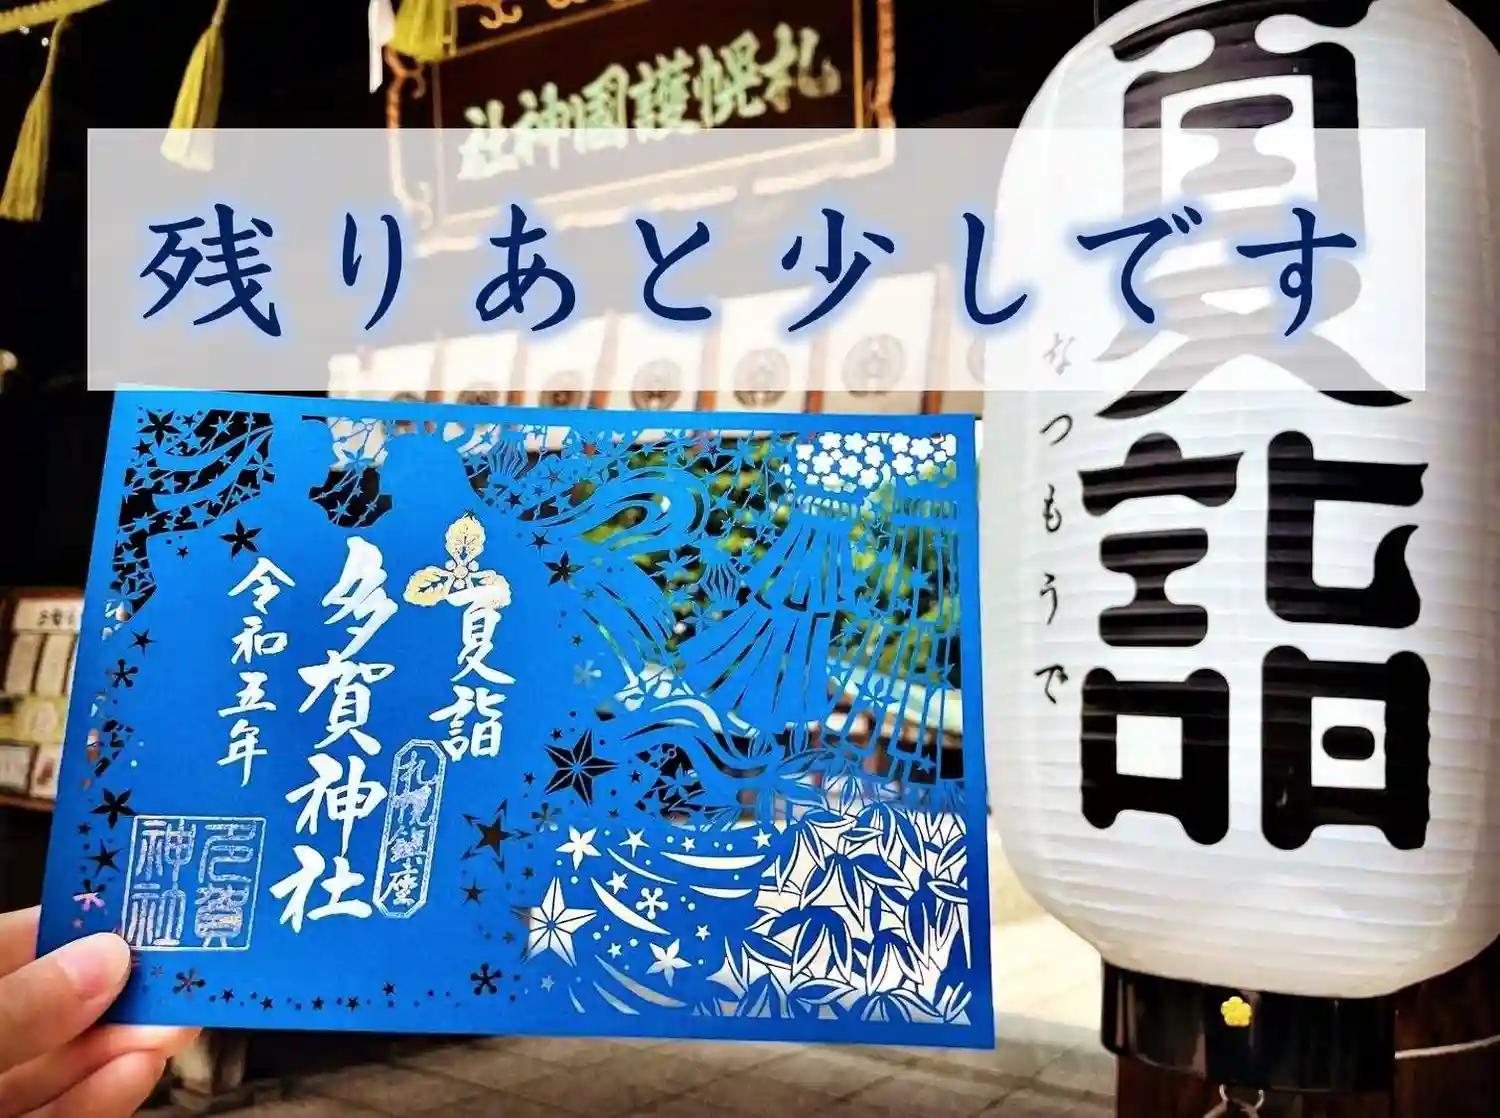 札幌護國神社
残りあと少しです
夏詣
なつもうで
夏詣
札幌鎮座
多賀神社
令和五年
多賀
神社